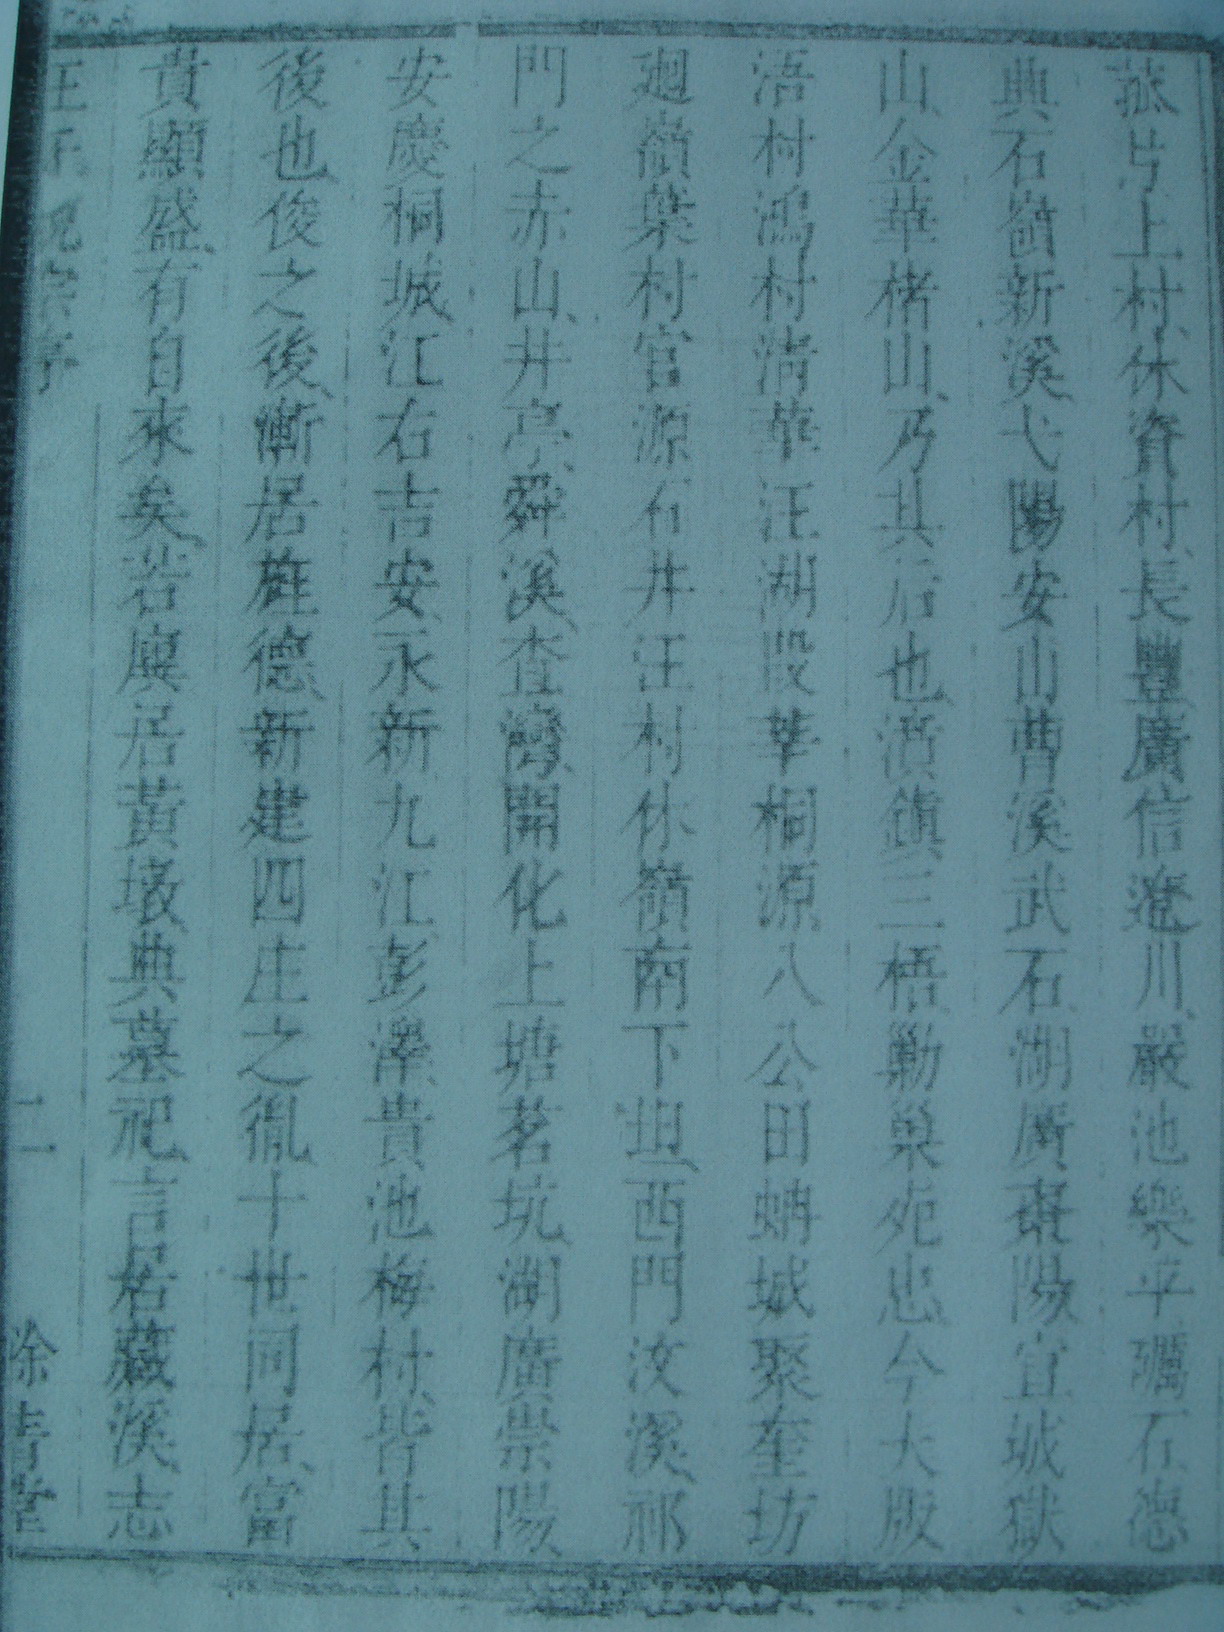 上村休資村長豐廣信遼川嚴池樂平礪石德
典石嶺新溪弋陽安山曹溪武石湖廣棗陽宜城獄
山金華楮山乃其后也濱鎮三梧勦巢死忠今大版
浯村鴻村清華汪湖段莘桐源八公田蚺城聚奎坊
廻嶺葉村官源石井汪村休嶺南下坦西門汶溪祁
門之赤山井亭舜溪查灣開化上塘茗坑湖廣崇陽
安慶桐城江右吉安永新九江彭澤貴池梅村皆其
後也俊之後漸居旌德新建四庄之胤十世同居富
貴顯盛有自來矣若廬居黃墩典墓祀言居藏溪志
王氏 宗 二